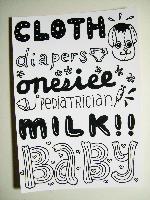 CLOTH
diapers
onesiee
PEDIATRICIAN
MILK!!
BABY